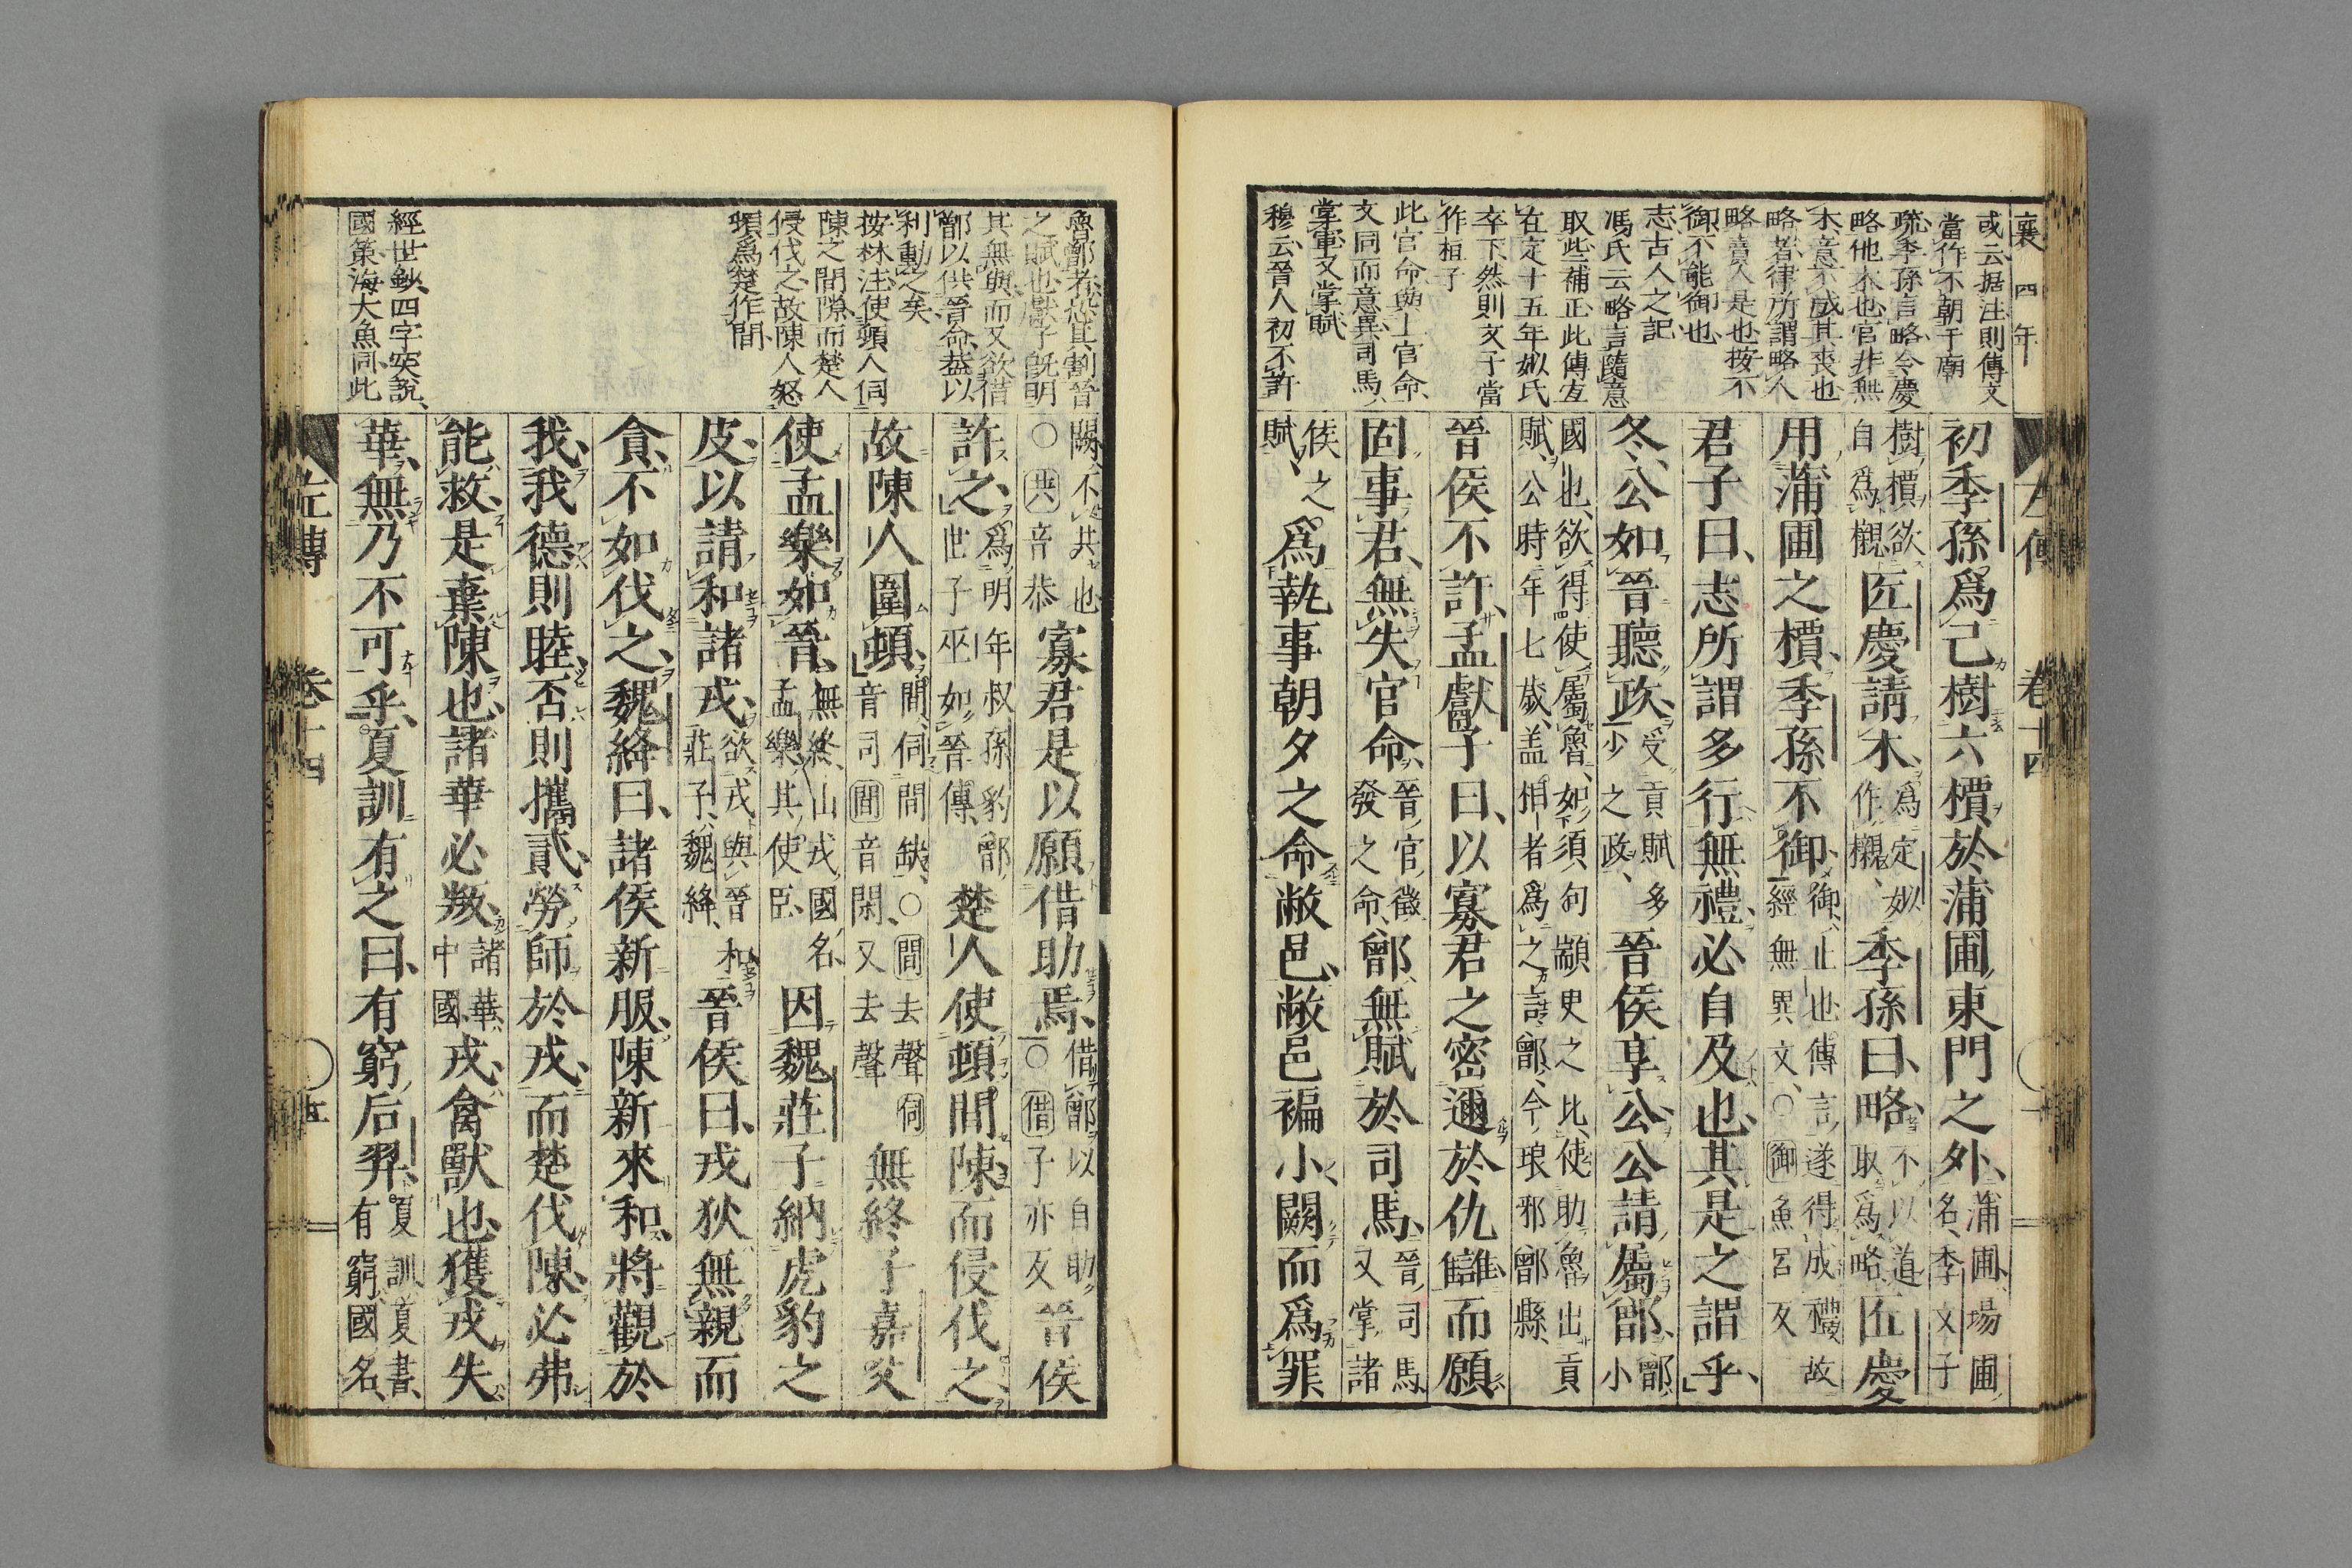 襄四年
或云据注則傳文
當作不朝于廟
疏季孫言略令慶
略他木也官非無
木意不成其喪也
略者律所謂略人
略賣人是也按不
御不能御也
志古人之記
馮氏云略言隨意
取些補正此傳宜
在定十五年姒氏
卒下然則文子當
作桓子
此官命與上官命
文同而意異司馬
掌軍又掌賦
穆云晉人初不許
左傳 卷十四
初季孫爲己樹六檟於蒲圃東門之外蒲圃場圃名季文子
樹檟欲自爲櫬匠慶請木爲定姒作櫬季孫曰略不以道取爲略匠慶
用蒲圃之檟季孫不御御止也傳言遂得成禮故經無異文○御魚呂反
君子曰志所謂多行無禮必自及也其是之謂乎
冬公如晉聽政受貢賦多少之政晉侯享公公請屬鄫鄫小
國也欲得使屬魯如須句顓臾之比使助魯出貢賦公時年七歲蓋相者爲之言鄫今琅邪鄫縣
晉侯不許孟獻子曰以寡君之密邇於仇讎而願
固事君無失官命晉官徵發之命鄫無賦於司馬晉司馬又掌諸
侯之賦爲執事朝夕之命敝邑敝邑褊小闕而爲罪
魯鄫者恐其割晉
之賦也獻子既明
其無與而又欲借
鄫以供晉命蓋以
利動之矣
按林注使頓人伺
陳之間隙而楚人
侵伐之故陳人怒
頓爲楚作間
經世鈔四字突說
國策海大魚同此
闕不共也○共音恭寡君是以願借助焉借鄫以自助○借子亦反晉侯
許之爲明年叔孫豹鄫世子巫如晉傳楚人使頓間陳而侵伐之
故陳人圍頓間伺間缺○間去聲伺音司間音閑又去聲無終子嘉父
使孟樂如晉無終山戎國名孟樂其使臣因魏莊子納虎豹之
皮以請和諸戎欲戎與晉和莊子魏絳晉侯曰戎狄無親而
貪不如伐之魏絳曰諸侯新服陳新來和將觀於
我我德則睦否則攜貳勞師於戎而楚伐陳必弗
能救是棄陳也諸華必叛諸華中國戎禽獸也獲戎失
華無乃不可乎夏訓有之曰有窮后羿夏訓夏書有窮國名
左傳 卷十四 五